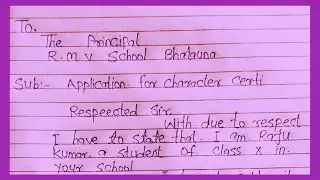 To,
The Principal
R.M.V School Bhatauna
Sub:- Application for character Certi
Respeected Sir,
With due to respect
I have to state that I am Raju
Kumar a student of class X in
Your School